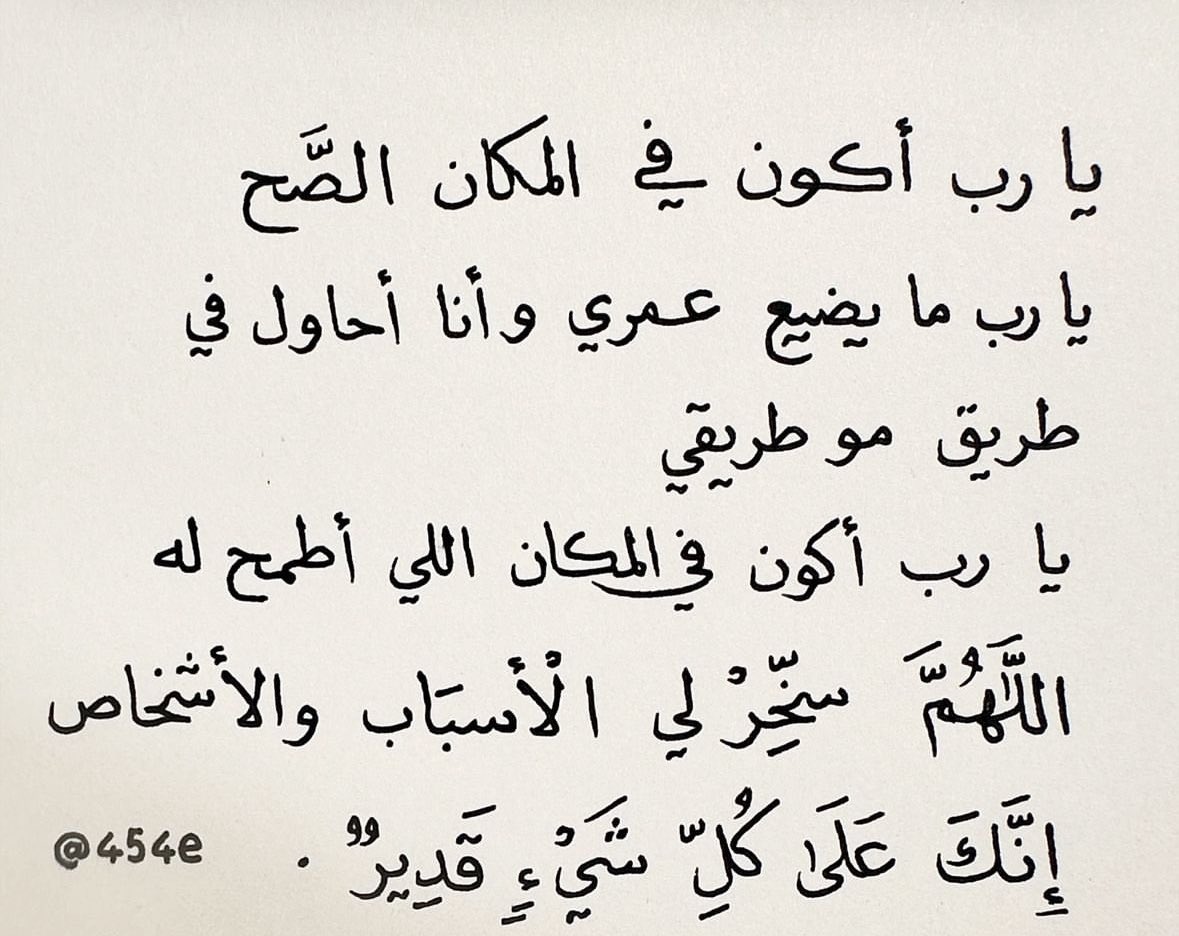 يا رب أكون في المكان الصَّح
يا رب ما يضيع عمري وأنا أحاول في
طريق مو طريقي
يا رب أكون في المكان اللي أطمح له
اللَّهُمَّ سخِّرْ لي الْأسبَاب والأشخاص
إِنَّكَ عَلَىٰ كُلِّ شَيْءٍ قَدِيرٌ .
@454e